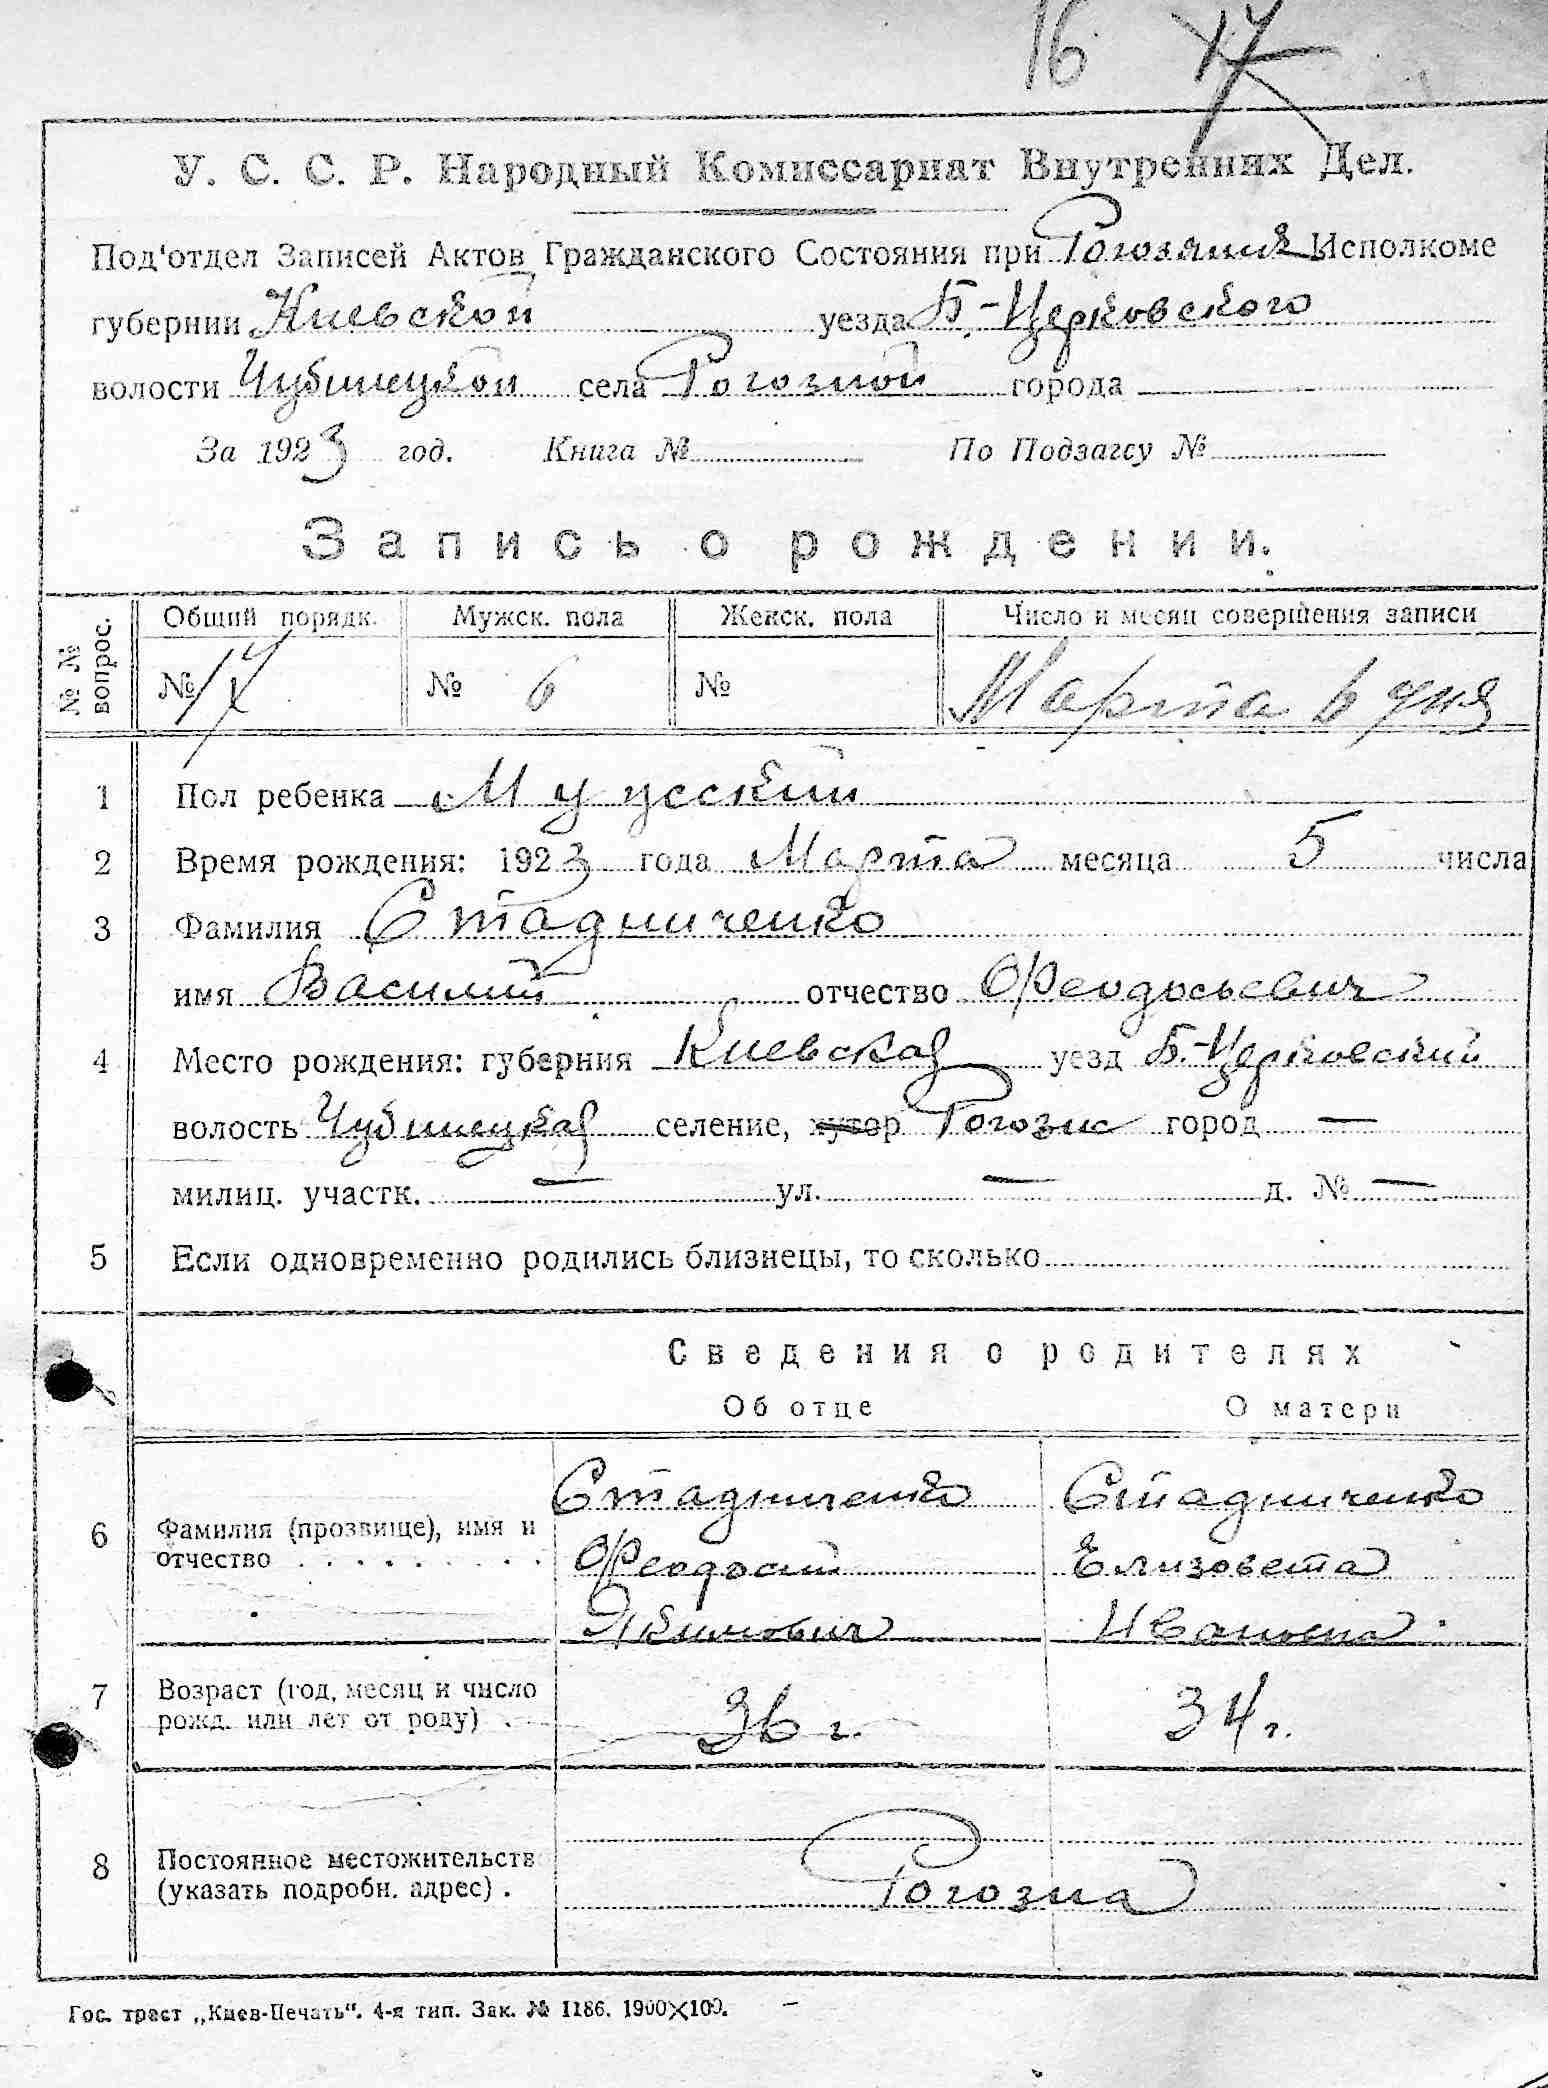 16 17
У. С. С. Р. Народный Комиссариат Внутренних Дел.
Под'отдел Записей Актов Гражданского Состояния при Рогозянск Исполкоме
губернии Киевской уезда Б.-Церковского
волости Чубинецкой села Рогозной города —
За 1923 год. Книга № По Подзагсу №
Запись о рождении.
№ № вопрос. Общий порядк. Мужск. пола Женск. пола Число и месяц совершения записи
№ 17 № 6 № Марта 6 дня
1 Пол ребенка Мужеский
2 Время рождения: 1923 года Марта месяца 5 числа
3 Фамилия Стадниченко
имя Василий отчество Феодосьевич
4 Место рождения: губерния Киевская уезд Б.-Церковский
волость Чубинецкая селение, хутор Рогозна город —
милиц. участк. — ул. — д. № —
5 Если одновременно родились близнецы, то сколько
Сведения о родителях
Об отце О матери
6 Фамилия (прозвище), имя и отчество
Стадниченко Стадниченко
Феодосий Елизовета
Якимович Ивановна
7 Возраст (год, месяц и число рожд. или лет от роду) 36 г. 34 г.
8 Постоянное местожительств (указать подробн. адрес). Рогозна
Гос. трест „Киев-Печать". 4-я тип. Зак. № 1186. 1900×100.